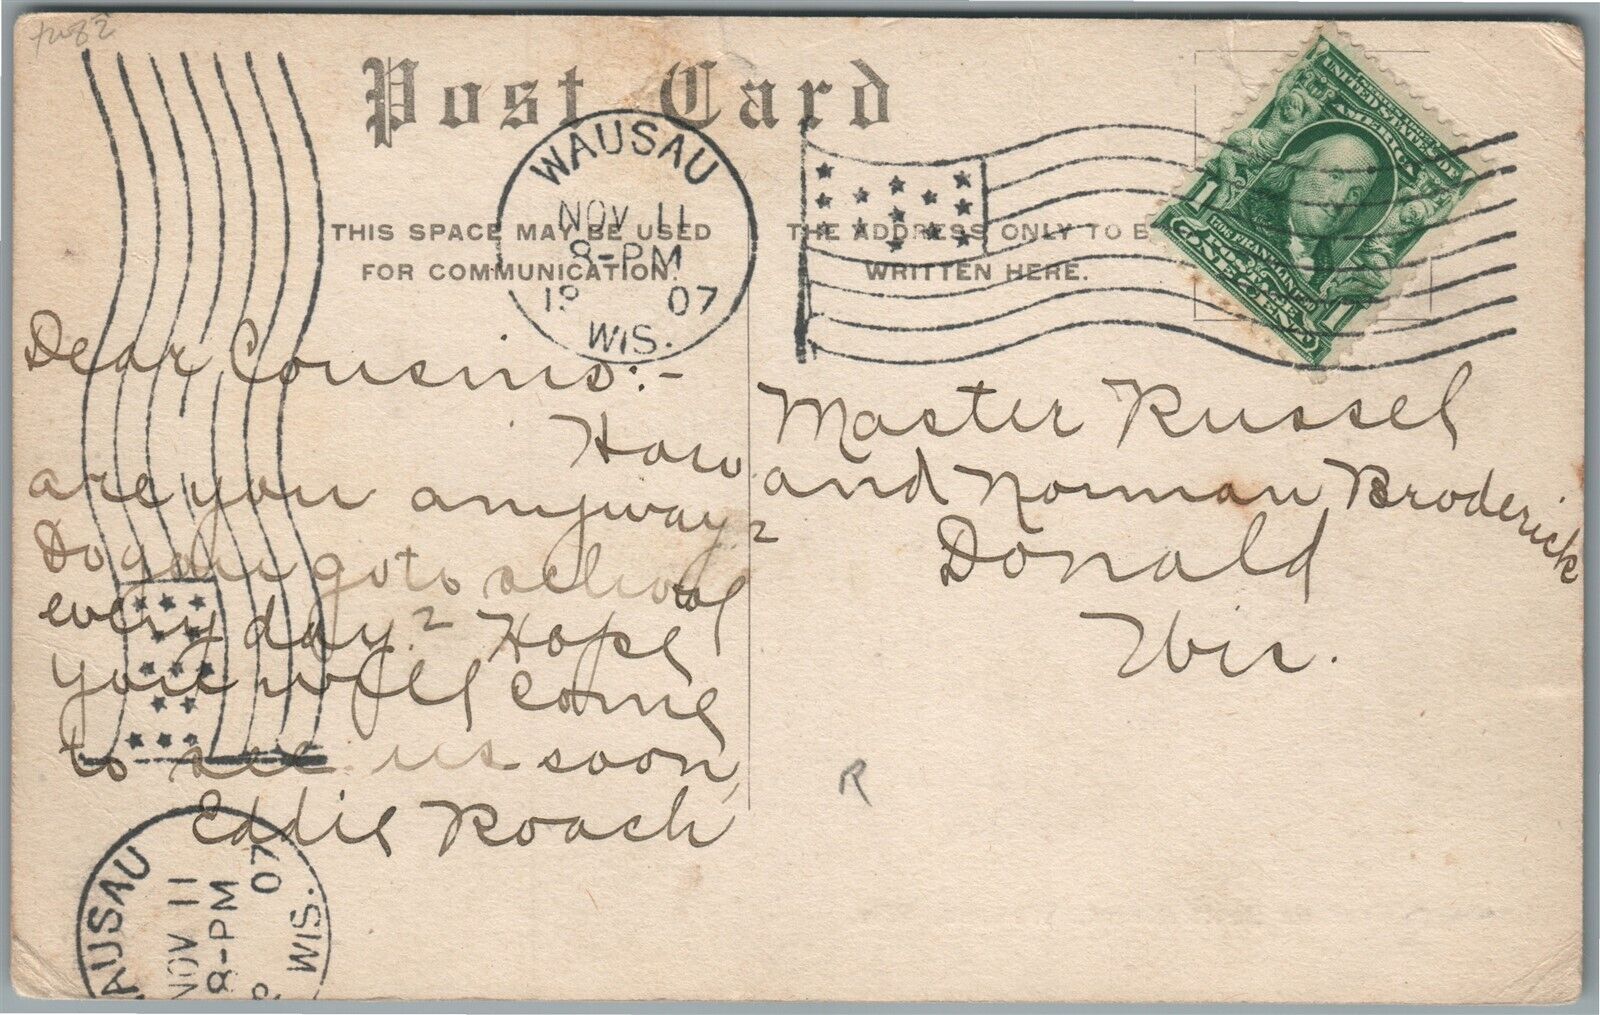 Post Card
WAUSAU
NOV 11
8-PM
07
WIS.
THIS SPACE MAY BE USED
FOR COMMUNICATION.
THE ADDRESS ONLY TO B
WRITTEN HERE.
UNITED STATES OF
AMERICA
1 1
1706 FRANKLIN 1790
POSTAGE
ONE CENT
Dear Cousins:-
How
are you anyway?
Do you go to school
every day? Hope
you will come
to see us soon,
Eddie Roach
Master Russel
and Norman Broderick
Donald
Wis.
R
AUSAU
NOV 11
8-PM
07
WIS.